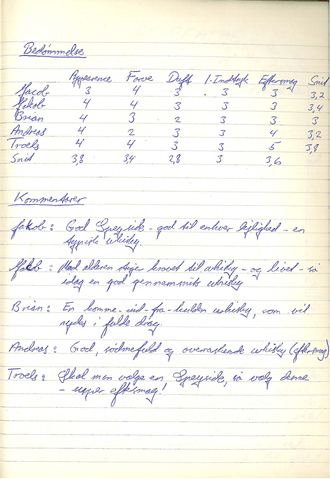 Bedømmelse
Appearence Farve Duft 1. Indtryk Eftersmag Snit
Jacob 3 4 3 3 3 3,2
Jakob 4 4 3 3 3 3,4
Brian 4 3 2 3 3 3
Andreas 4 2 3 3 4 3,2
Troels 4 4 3 3 5 3,8
Snit 3,8 3,4 2,8 3 3,6
Kommentarer
Jakob: God Speyside - god til enhver lejlighed - en
typisk whisky.
Med alderen stiger kravet til whisky - og livet - så
idag en god gennemsnits whisky
Brian: En komme-ind-fra-kulden whisky, som vil
nydes i fulde drag
Andreas: God, sødmefuld og overraskende whisky (eftersmag)
Troels: Skal man vælge en Speyside, så vælg denne
- super eftersmag!